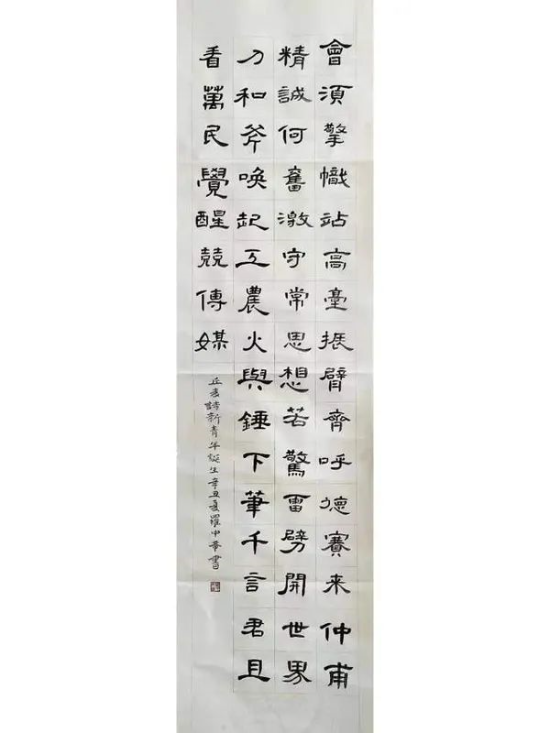 會須擎幟站高臺振臂齊呼德賽来仲甫
精誠何奮激守常思想若驚雷劈開世界
刀和斧喚起工農火與錘下筆千言君且
看萬民覺醒競傳媒
丘詩新青年誕生辛丑夏羅中華書